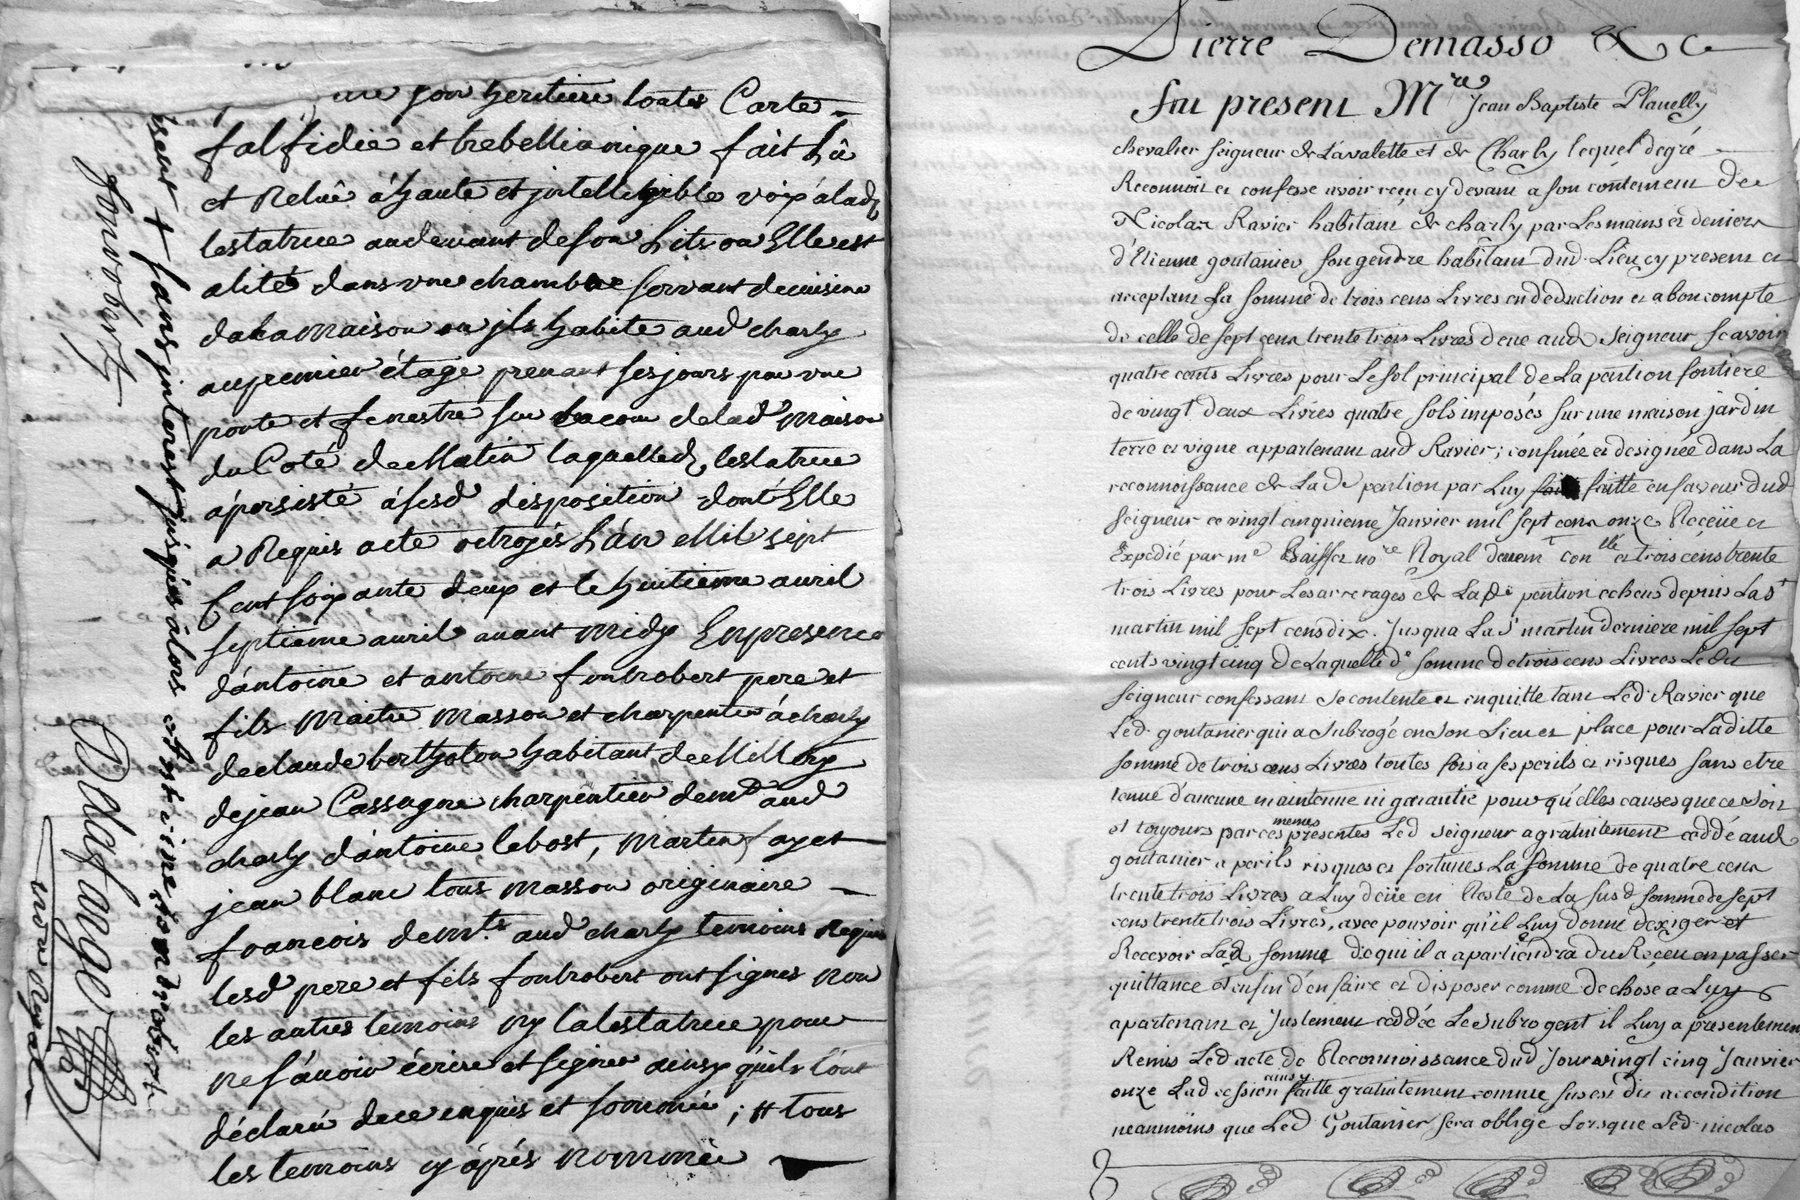 son heritiere toutes Carte
falfidie et trebellianique fait Lû
et Relûe á haute et jntelligible voix á lad
testatrice audevant de son Lits ou Elle est
alitée dans une chambre servant de cuisine
de la maison ou jls habite aud charly
au premier étage prenant ses jours par une
porte et fenestre sur la cour de lad maison
du Coté de Matin laquelled, testatrice
á persisté á sesd disposition dont Elle
a Requis acte octroyés L'án Mil sept
Cent soixante deux et le huitieme avril
septieme avril avant midy En presence
d'ántoine et antoine fontrobert pere et
fils Maitre Masson et charpentier á charly
de claude bertholon habitant de Millery
de jean Cassagne charpentier dem.t aud
charly d'ántoine lebost, Martin fayet
jean blanc tous masson originaire
francois dem.ts aud charly temoins Requis
lesd pere et fils fontrobert ont signés non
les autres temoins ny la testatrice pour
ne sçávoir écrire et signer ainsy quils l'ont
déclaré de ce enquis et sommée ; # tous
les temoins cy áprés nommée
fontrobert
+ sans jnterest jusques álors
Delafange
no.re Royal
Pierre Demasso & c
fut present M.re Jean Baptiste Planelly
chevalier seigneur de Lavalette et de Charly lequel degré
Reconnoit et confesse avoir receu cy devant a son contement de
Nicolas Ravier habitant de charly par Les mains et deniers
d'Etienne goutanier son gendre habitant dud. Lieu cy present et
acceptant La somme de trois cens Livres en deduction et a bon compte
de celle de sept cens trente trois Livres deue aud seigneur scavoir
quatre cents Livres pour Le sol principal de La pention fontiere
de vingt deux Livres quatre sols imposés sur une maison jardin
terre et vigne appartenant aud Ravier ; confinée et designée dans La
reconnoissance de Lad.e pention par Luy faitte en faveur dud
seigneur ce vingt cinquieme Janvier mil sept cens onze Receüe et
Expedié par m.e Baisse no.re Royal et trois cens trente
trois Livres pour Les arrerages de Lad.e pention echeus depuis La S.t
martin mil sept cens dix. Jusqua La S.t martin derniere mil sept
cents vingt cinq de Laquelle d.e somme de trois cens Livres Led.
seigneur confessant se contente et en quitte tant Led. Ravier que
Led. goutanier qui a subrogé en son Lieu et place pour Laditte
somme de trois cens Livres toutes fois a ses perils et risques sans etre
tenue d'aucune maintenue ni garantie pour quelles causes que ce soit
et toujours par ces memes presentes Led seigneur a gratuitement ceddé aud
goutanier a perils risques et fortunes La somme de quatre cens
trente trois Livres a Luy deüe en Reste de La susd somme de sept
cens trente trois Livres, avec pouvoir qu'il Luy donne d'exiger et
Recevoir Lad somme de qui il apartiendra du Receu en passer
quittance et enfin d'en faire et disposer comme de chose a Luy
apartenant et Justement ceddée Le subrogent il Luy a presentement
Remis Led acte de Reconnoissance dud Jour vingt cinq Janvier
onze Lad cession ainsy faitte gratuitement comme sus est dit a condition
neanmoins que Led. Goutanier sera oblige Lorsque Led. nicolas